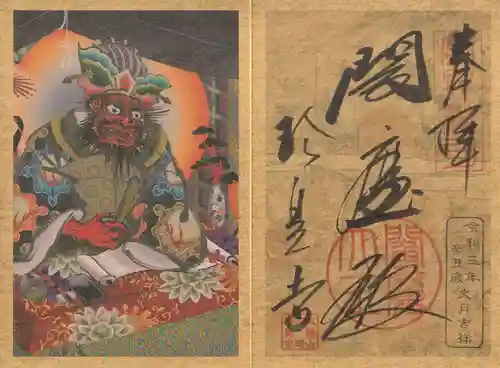 奉拝
閻魔殿
珍皇寺
令和三年
辛丑歳文月吉祥